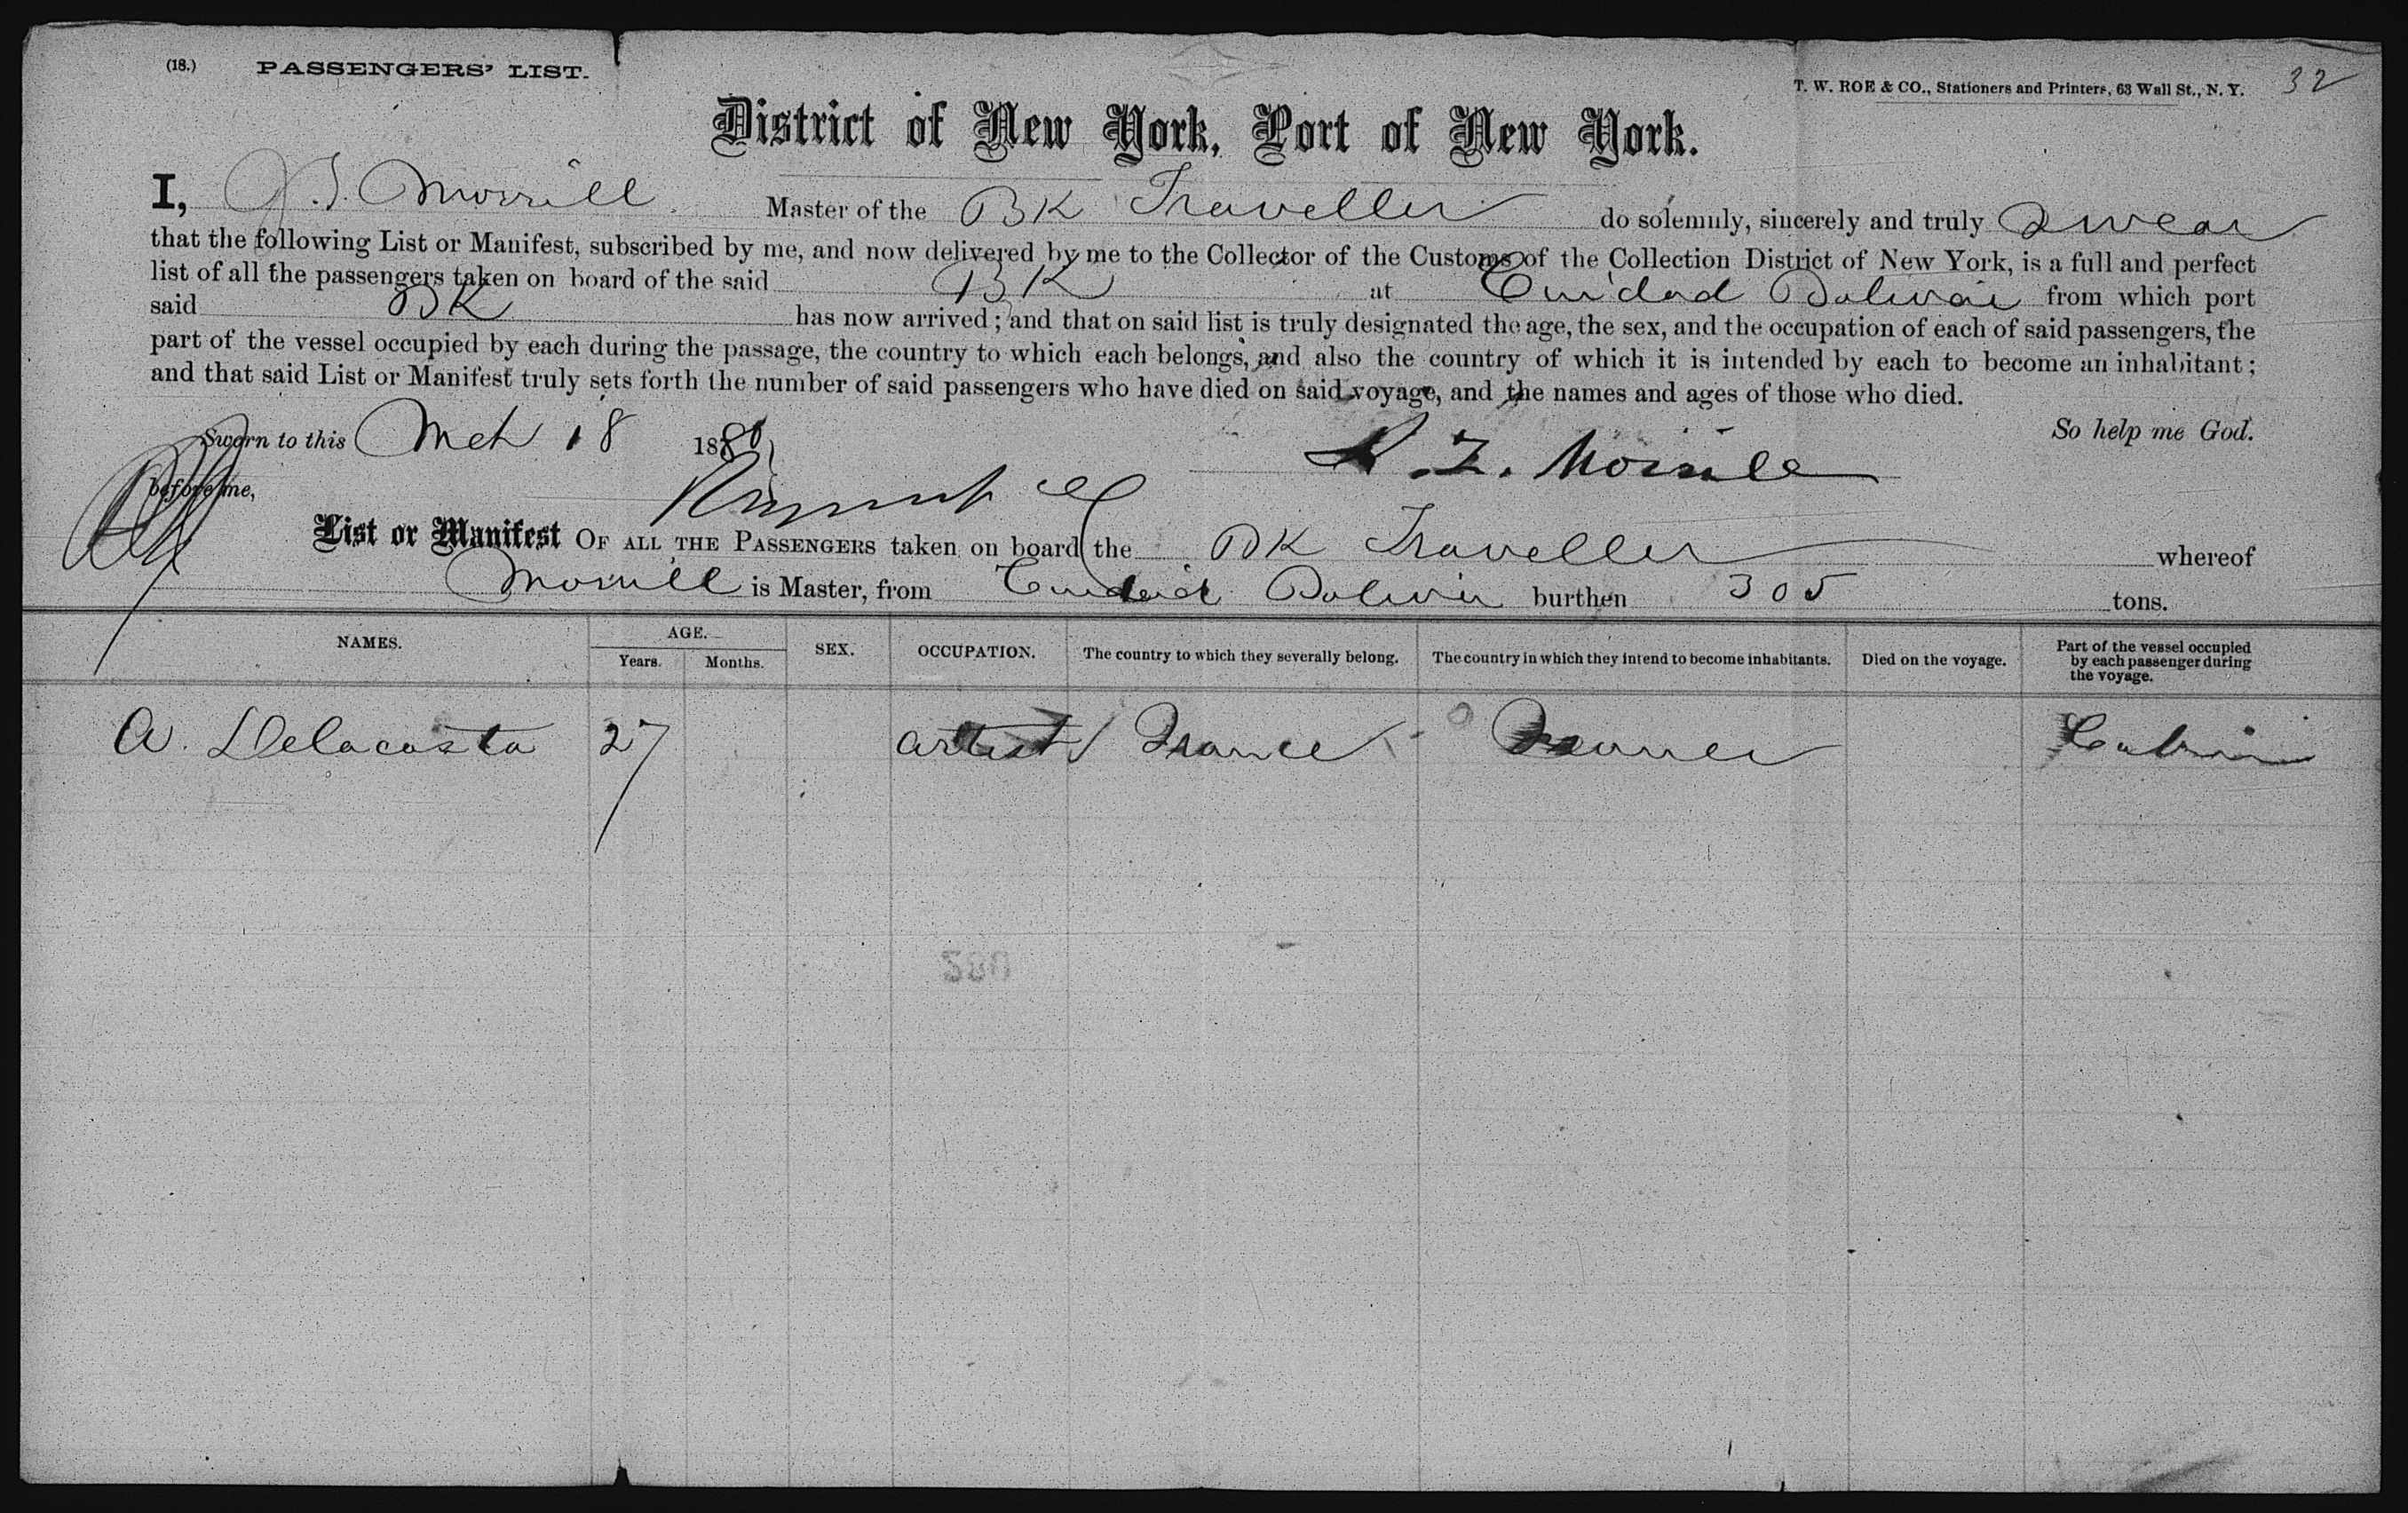 (18.) PASSENGERS' LIST.
T. W. ROE & CO., Stationers and Printers, 63 Wall St., N. Y. 32
District of New York, Port of New York.
I, Morrill Master of the BK Traveller do solemnly, sincerely and truly Swear
that the following List or Manifest, subscribed by me, and now delivered by me to the Collector of the Customs of the Collection District of New York, is a full and perfect
list of all the passengers taken on board of the said BK at Cuidad Bolivar from which port
said BK has now arrived; and that on said list is truly designated the age, the sex, and the occupation of each of said passengers, the
part of the vessel occupied by each during the passage, the country to which each belongs, and also the country of which it is intended by each to become an inhabitant;
and that said List or Manifest truly sets forth the number of said passengers who have died on said voyage, and the names and ages of those who died.
So help me God.
Sworn to this Mch 18 1880
Morrill
before me,
List or Manifest OF ALL THE PASSENGERS taken on board the BK Traveller whereof
Morrill is Master, from Cuidad Bolivar burthen 305 tons.
NAMES. AGE. Years. Months. SEX. OCCUPATION. The country to which they severally belong. The country in which they intend to become inhabitants. Died on the voyage. Part of the vessel occupied by each passenger during the voyage.
A. Delacosta 27 artist France France Cabin